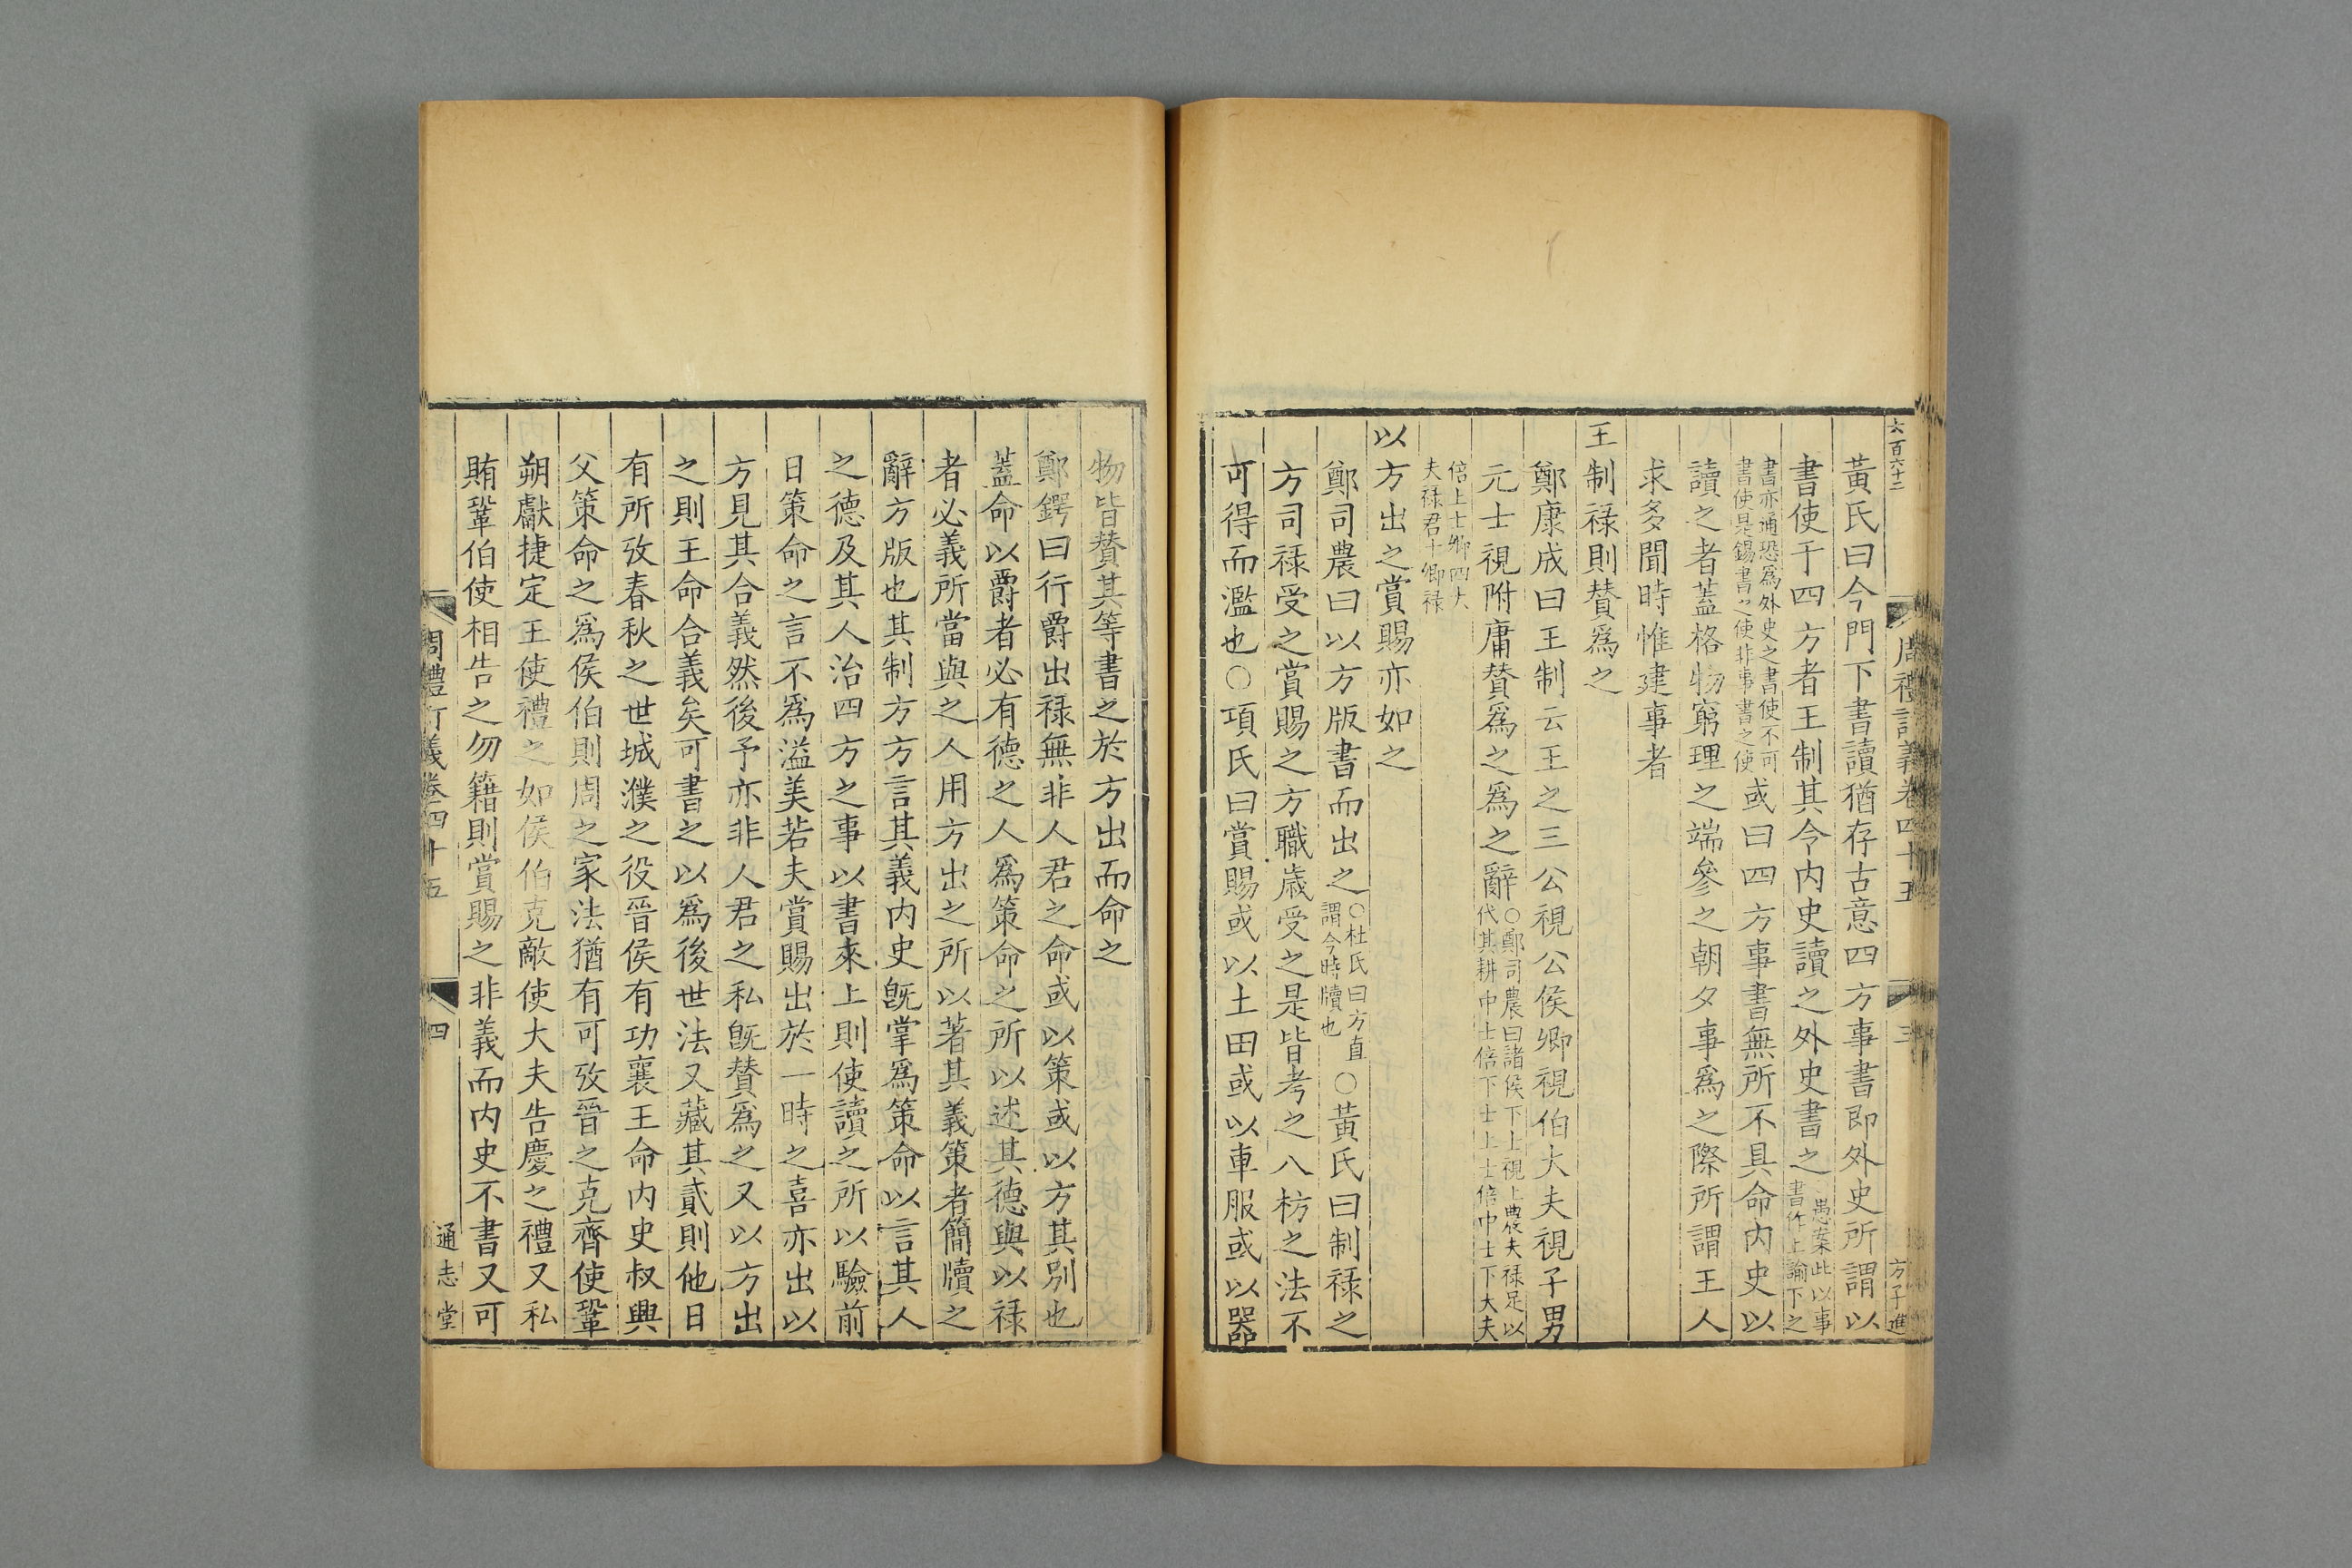 六百六十二
周禮訂義卷四十五
三
方子進
黃氏曰今門下書讀猶存古意四方事書即外史所謂以
書使于四方者王制其令內史讀之外史書之愚案此以事書作上諭下之
書亦通恐爲外史之書使不可書使是錫書之使非事書之使或曰四方事書無所不具命內史以
讀之者蓋格物窮理之端參之朝夕事爲之際所謂王人
求多聞時惟建事者
王制祿則贊爲之
鄭康成曰王制云王之三公視公侯卿視伯大夫視子男
元士視附庸贊爲之爲之辭○鄭司農曰諸侯下士視上農夫祿足以代其耕中士倍下士上士倍中士下大夫
倍上士卿四大夫祿君十卿祿
以方出之賞賜亦如之
鄭司農曰以方版書而出之○杜氏曰方直謂今時牘也○黃氏曰制祿之
方司祿受之賞賜之方職歲受之是皆考之八枋之法不
可得而濫也○項氏曰賞賜或以土田或以車服或以器
物皆贊其等書之於方出而命之
鄭鍔曰行爵出祿無非人君之命或以策或以方其別也
蓋命以爵者必有德之人爲策命之所以述其德與以祿
者必義所當與之人用方出之所以著其義策者簡牘之
辭方版也其制方方言其義內史旣掌爲策命以言其人
之德及其人治四方之事以書來上則使讀之所以驗前
日策命之言不爲溢美若夫賞賜出於一時之喜亦出以
方見其合義然後予亦非人君之私旣贊爲之又以方出
之則王命合義矣可書之以爲後世法又藏其貳則他日
有所攷春秋之世城濮之役晉侯有功襄王命內史叔興
父策命之爲侯伯則周之家法猶有可攷晉之克齊使鞏
朔獻捷定王使禮之如侯伯克敵使大夫告慶之禮又私
賄鞏伯使相告之勿籍則賞賜之非義而內史不書又可
周禮訂義卷四十五
四
通志堂